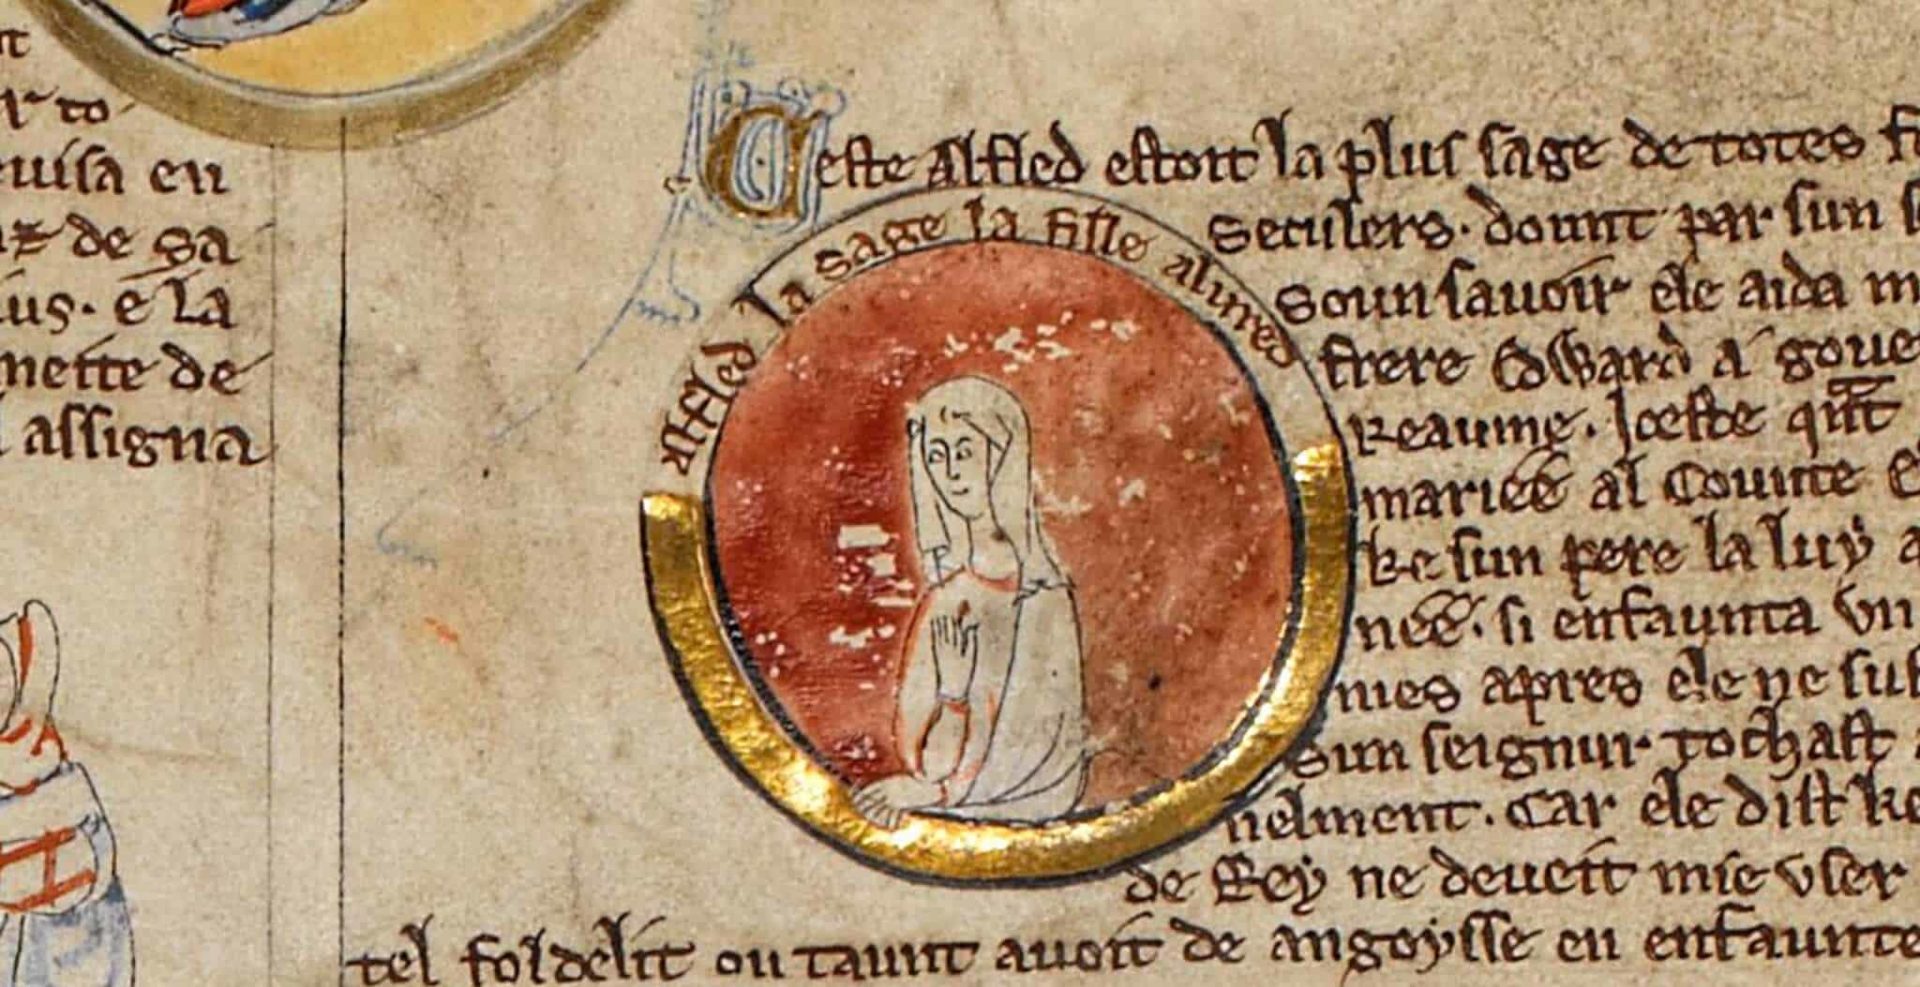 r to
uisa en
de Ga
ius. e la
nette de
assigna
Alfled la sage la fille alured
Ceste Alfled estoit la plus sage de totes
Seculers. dount par sun
Soun sauoir ele aida
frere Edward a goue
Reaume. Iceste
mariee al Counte
ke sun pere la luy a
nee. si enfaunta vn
mes apres ele ne suf
Sun seignur tochast
nelment. Car ele dist ke
de Rey ne deueit mie vser
tel fol delit ou taunt auoit de angoysse en enfaunte